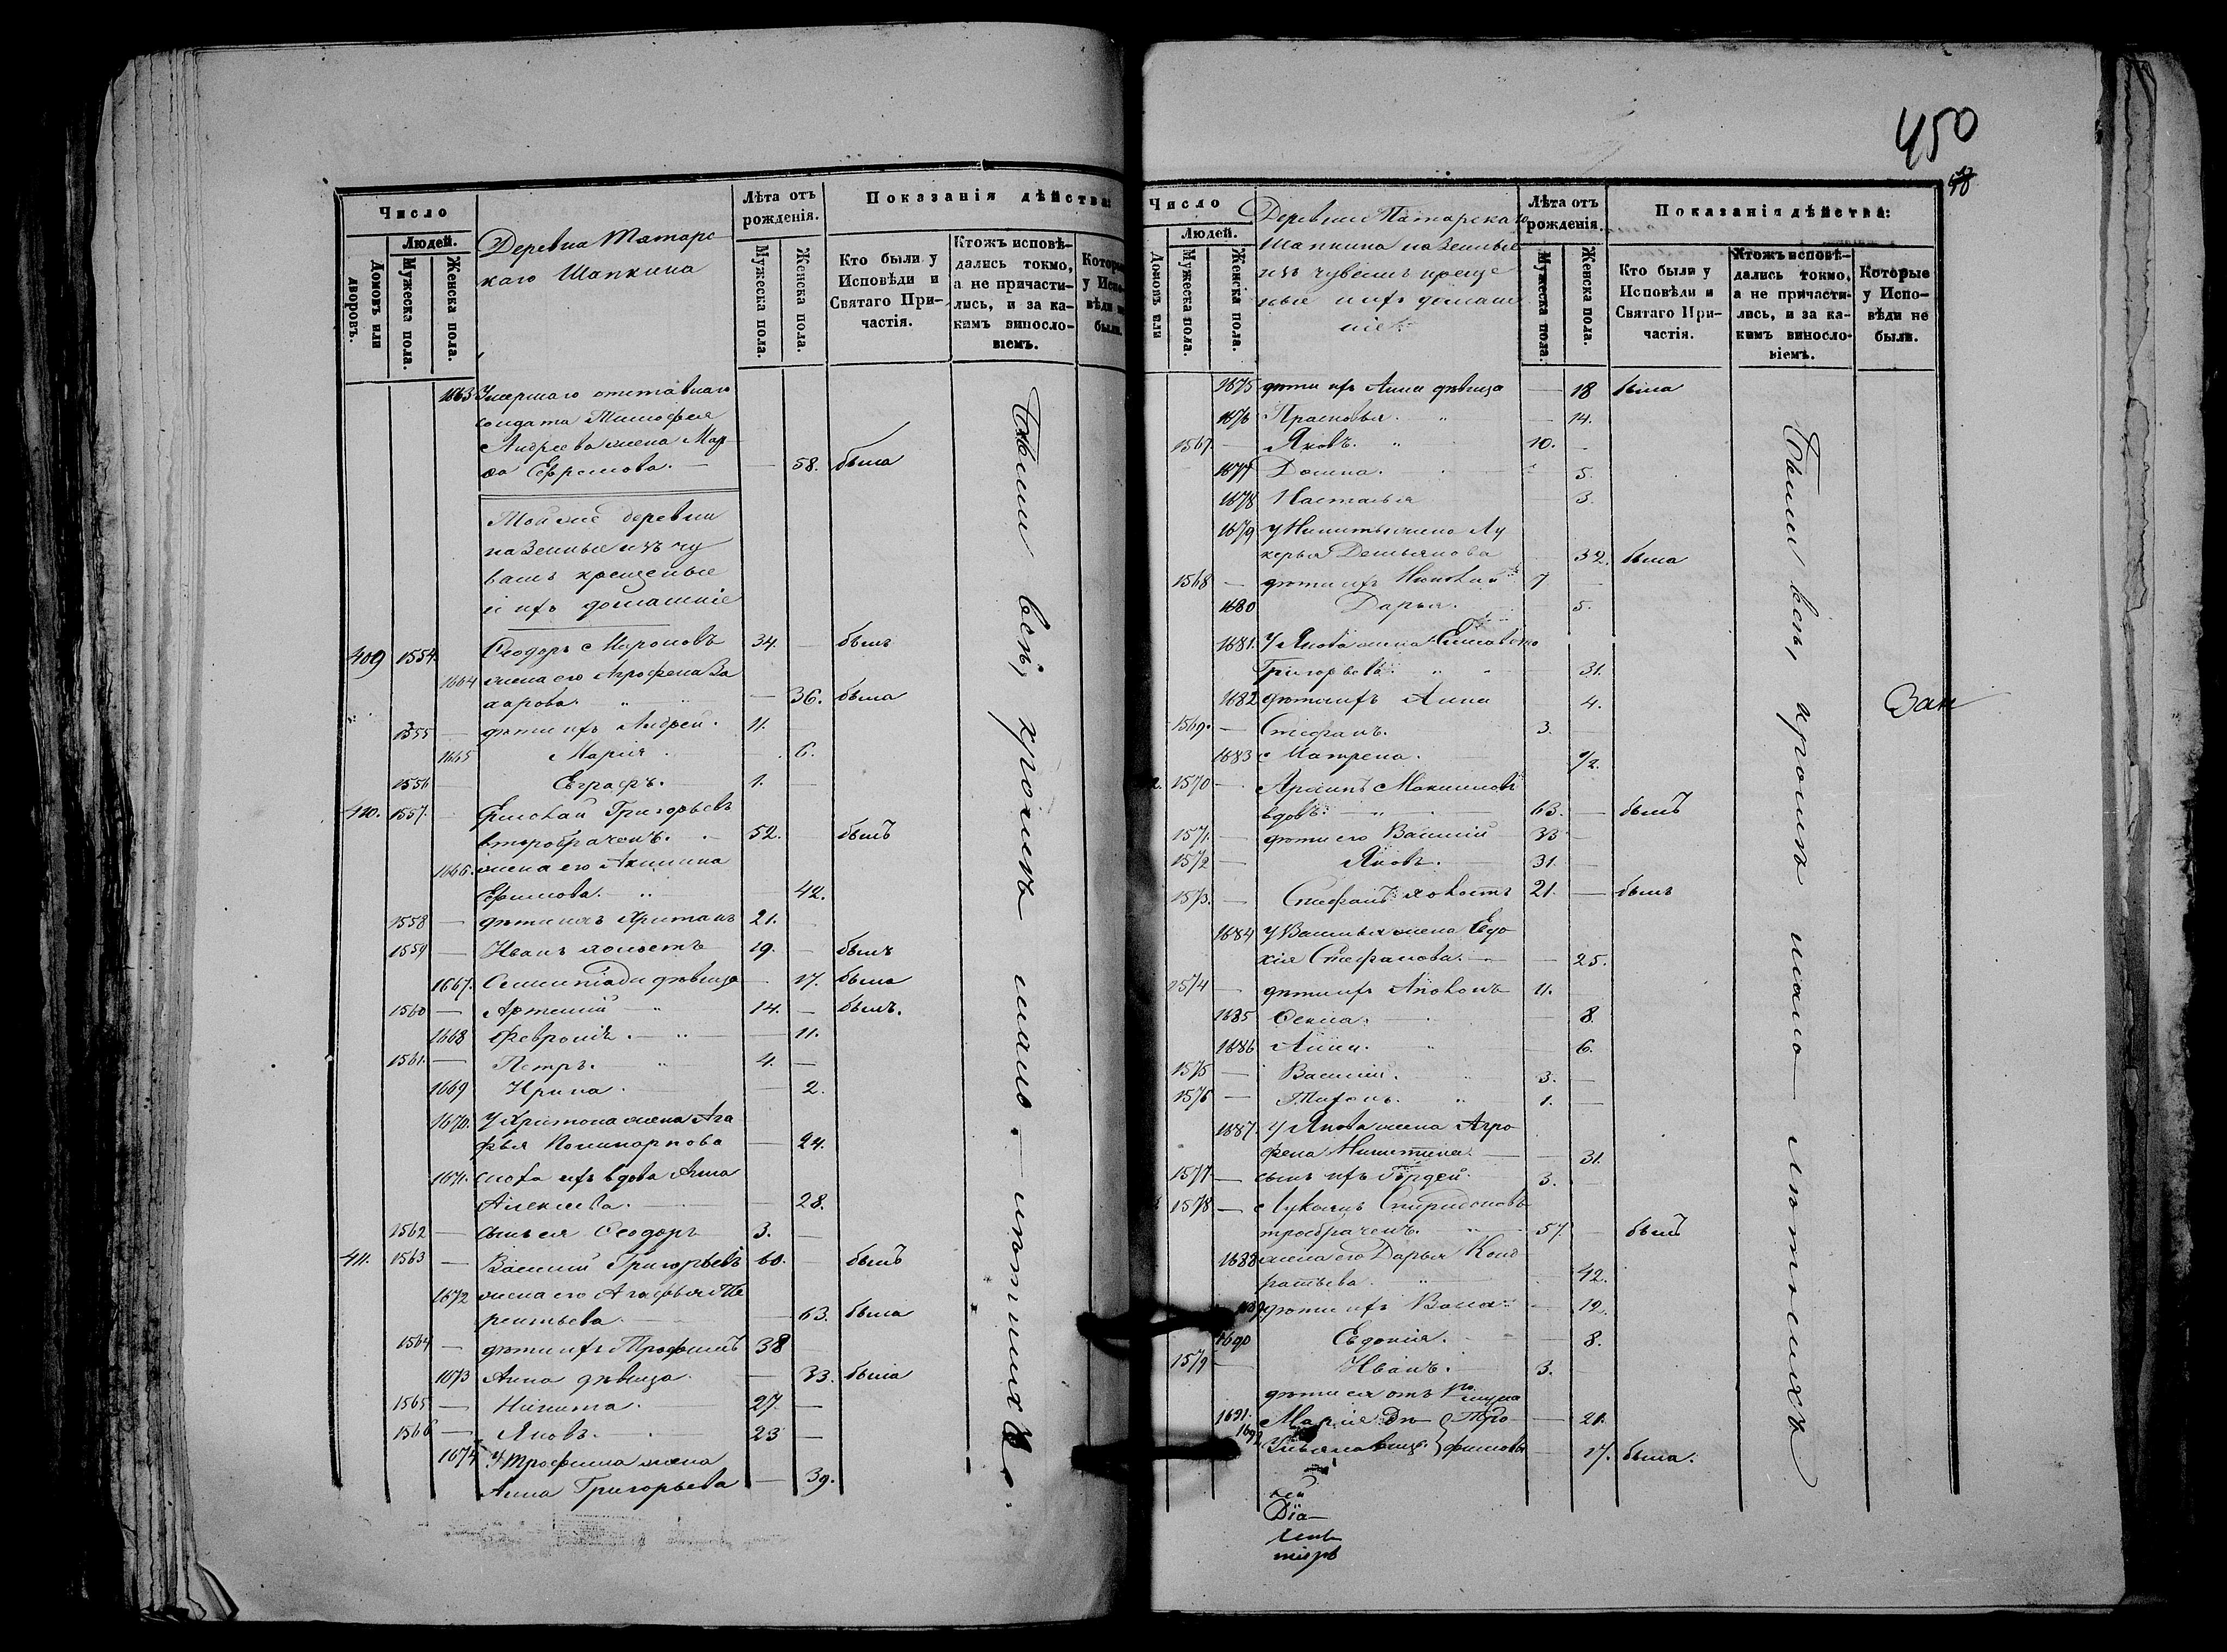 Число
Людей.
Домовъ или дворовъ.
Мужеска пола.
Женска пола.
Деревна Татарс
каго Шапкина
Лѣта отъ рожденія.
Мужеска пола.
Женска пола.
Показанія дѣйства:
Кто были у Исповѣди и Святаго Причастія.
Ктожъ исповѣдались токмо, а не причастились, и за какимъ винословіемъ.
Которые у Исповѣди не были.
1663 Умершаго отставнаго
солдата Тимофея
Андреева жена Мар
ѳа Ефремова. — — 58. была
Той же деревни
из чу
вашъ крещеные
и ихъ домашніе
409 1554. Ѳеодоръ Мироновъ 34. — былъ
1664 жена его Агрофена За
харова — 36. была
1555 — дѣти ихъ Андрей. 11.
1665 Марія. 6.
1556 — Евграфъ. 1. —
410. 1557. — Григорьевъ
второбраченъ. 52. былъ
1666. жена его Акилина
Ефимова. — 42.
1558 — дѣти ихъ Харитонъ 21.
1559 — Иванъ холостъ 19. — былъ
1667. дѣвица — 17. была
1560 — Артемій 14. — былъ.
1668 Февронія. — 11.
1561. — Петръ. 4. —
1669 Ирина. 2.
1670. У Харитона жена Ага
фья Поликарпова — 24.
1671. сноха ихъ вдова Анна
Алексеева. — 28.
1562 — сынъ ея Ѳеодоръ 3. —
411. 1563 — Василій Григорьевъ 60. былъ
1672 жена его Агафья Те
рентьева. — 63. была
1564 — дѣти ихъ Трофимъ 38
1673 Анна дѣвица. — 33. была
1565 — Никита. 27. —
1566 — Яковъ. 23 —
1674 У Трофима жена
Анна Григорьева — 39.
Были всѣ, кромѣ мало-лѣтнихъ.
450
Число
Людей.
Домовъ или
Мужеска пола.
Женска пола.
Деревни Татарскаго
Шапкина
изъ чувашъ креще
ные и ихъ домаш
ніе.
Лѣта отъ рожденія.
Мужеска пола.
Женска пола.
Показанія дѣйства:
Кто были у Исповѣди и Святаго Причастія.
Ктожъ исповѣдались токмо, а не причастились, и за какимъ винословіемъ.
Которые у Исповѣди не были.
1675 дѣти ихъ Анна дѣвица — 18 была
1676 Прасковья. — 14.
1567. — Яковъ. 10. -
1677 Домна. 5.
1678 Настасья — 3.
1679 У Никиты жена Лу
керья Демьянова — 32. была
1568 — дѣти ихъ Николай 7 —
1680 Дарья. 5.
1681. У Якова жена Елисавета
Григорьева — 31.
1682 дѣти ихъ Анна 4.
1569. — Стефанъ. 3. —
1683 Матрена. 1/2.
1570 — Архипъ Максимовъ
вдовъ. 63. — былъ
1571. — дѣти его Василій 33
1572 — Яковъ. 31. —
1573. — Стефанъ холостъ 21. — былъ
1684 У Василья жена Евдо
кія Стефанова. — 25.
1574 — дѣти ихъ 11.
1685 Оекла. — 8.
1686 Анна. — 6.
1575 — Василій. 3. —
1576 — Тихонъ. 1. —
1687. У Якова жена Агро
фена Никитина. — 31.
1577 — сынъ ихъ Гордей 3. —
1578 — Лукьянъ Спиридоновъ
троебраченъ. 57. — былъ
1688 жена его Дарья Конд
ратьева. 42.
дѣти ихъ — 12.
1690 Евдокія. — 8.
1579 — Иванъ. 3.
дѣти ея отъ 1го мужа
1691. Марія Тро — 21.
1692 Ульяна дѣвица } фимовы — 17. была.
Были всѣ, кромѣ мало-лѣтнихъ
Зак
кей
Діа-